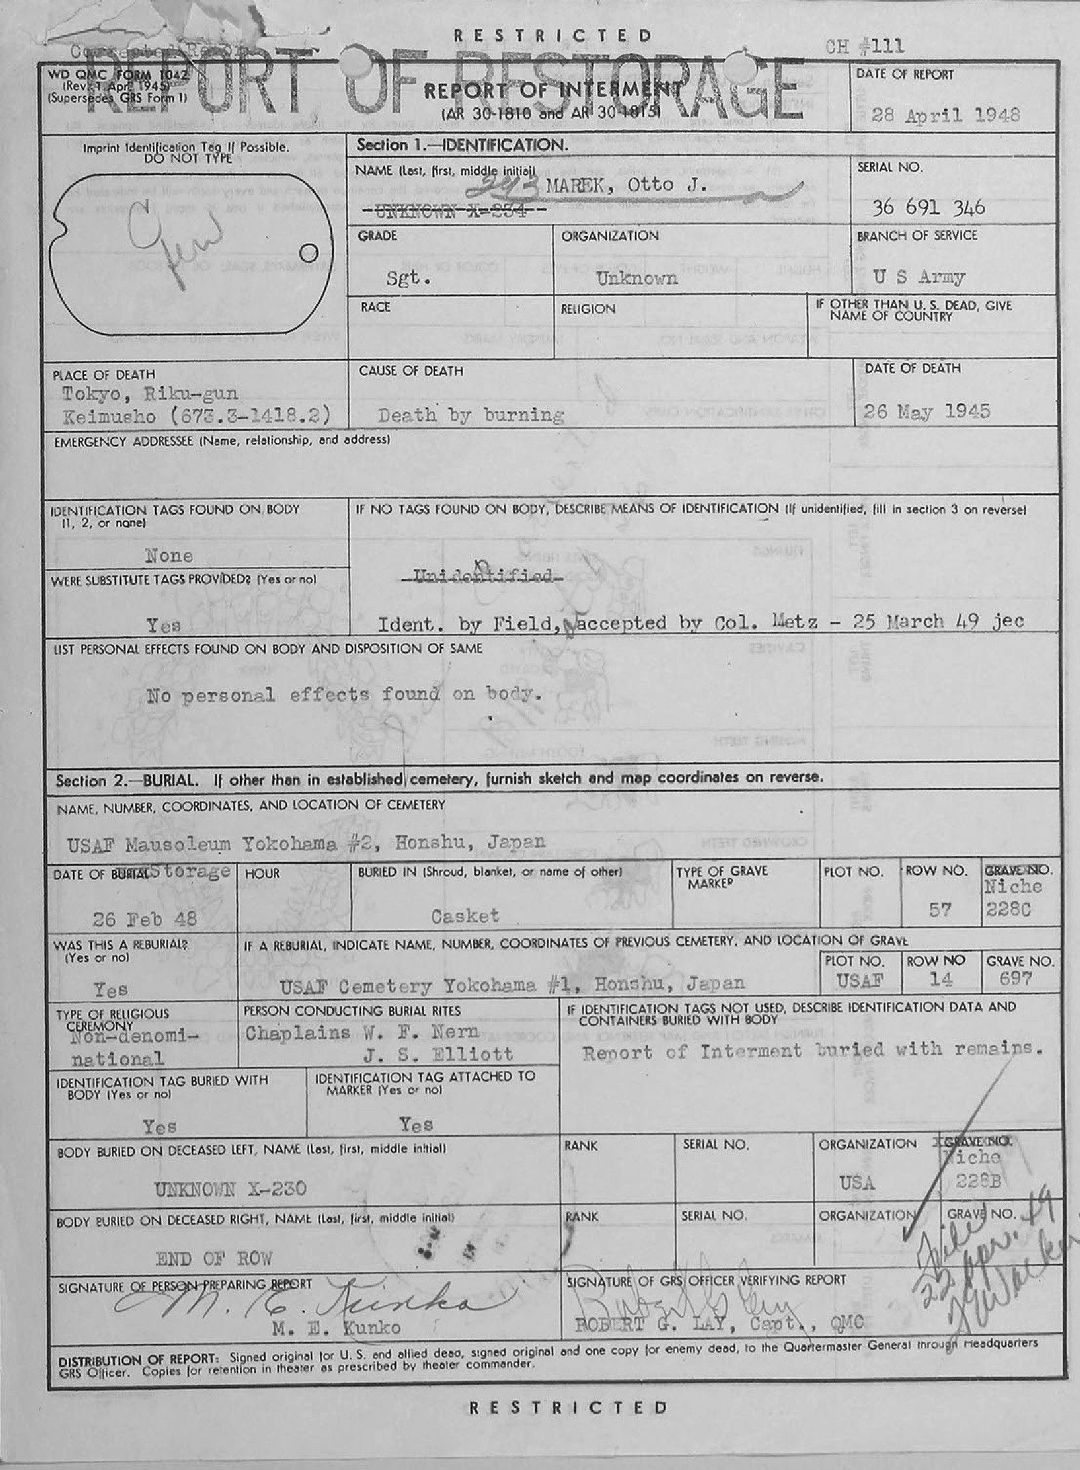 RESTRICTED
Corrected Report
CH #111
REPORT OF RESTORAGE
WD QMC FORM 1042
(Rev. 1 Apr 1945)
(Supersedes GRS Form 1)
REPORT OF INTERMENT
(AR 30-1810 and AR 30-1815)
DATE OF REPORT
28 April 1948
Imprint Identification Tag If Possible.
DO NOT TYPE
Section 1.—IDENTIFICATION.
NAME (Last, first, middle initial)
MAREK, Otto J.
UNKNOWN X-234
SERIAL NO.
36 691 346
GRADE
Sgt.
ORGANIZATION
Unknown
BRANCH OF SERVICE
U S Army
RACE
RELIGION
IF OTHER THAN U. S. DEAD, GIVE
NAME OF COUNTRY
PLACE OF DEATH
Tokyo, Riku-gun
Keimusho (673.3-1418.2)
CAUSE OF DEATH
Death by burning
DATE OF DEATH
26 May 1945
EMERGENCY ADDRESSEE (Name, relationship, and address)
IDENTIFICATION TAGS FOUND ON BODY
(1, 2, or none)
None
IF NO TAGS FOUND ON BODY, DESCRIBE MEANS OF IDENTIFICATION (If unidentified, fill in section 3 on reverse)
Unidentified
WERE SUBSTITUTE TAGS PROVIDED? (Yes or no)
Yes
Ident. by Field, accepted by Col. Metz - 25 March 49 jec
LIST PERSONAL EFFECTS FOUND ON BODY AND DISPOSITION OF SAME
No personal effects found on body.
Section 2.—BURIAL. If other than in established cemetery, furnish sketch and map coordinates on reverse.
NAME, NUMBER, COORDINATES, AND LOCATION OF CEMETERY
USAF Mausoleum Yokohama #2, Honshu, Japan
DATE OF BURIAL Storage
26 Feb 48
HOUR
BURIED IN (Shroud, blanket, or name of other)
Casket
TYPE OF GRAVE
MARKER
PLOT NO.
ROW NO.
57
GRAVE NO.
Niche
228C
WAS THIS A REBURIAL?
(Yes or no)
Yes
IF A REBURIAL, INDICATE NAME, NUMBER, COORDINATES OF PREVIOUS CEMETERY, AND LOCATION OF GRAVE
USAF Cemetery Yokohama #1, Honshu, Japan
PLOT NO.
USAF
ROW NO
14
GRAVE NO.
697
TYPE OF RELIGIOUS
CEREMONY
Non-denomi-
national
PERSON CONDUCTING BURIAL RITES
Chaplains W. F. Nern
J. S. Elliott
IF IDENTIFICATION TAGS NOT USED, DESCRIBE IDENTIFICATION DATA AND
CONTAINERS BURIED WITH BODY
Report of Interment buried with remains.
IDENTIFICATION TAG BURIED WITH
BODY (Yes or no)
Yes
IDENTIFICATION TAG ATTACHED TO
MARKER (Yes or no)
Yes
BODY BURIED ON DECEASED LEFT, NAME (Last, first, middle initial)
UNKNOWN X-230
RANK
SERIAL NO.
ORGANIZATION
USA
GRAVE NO.
Niche
228B
BODY BURIED ON DECEASED RIGHT, NAME (Last, first, middle initial)
END OF ROW
RANK
SERIAL NO.
ORGANIZATION
GRAVE NO.
File
22 Apr. 49
SIGNATURE OF PERSON PREPARING REPORT
M. E. Kunko
M. E. Kunko
SIGNATURE OF GRS OFFICER VERIFYING REPORT
ROBERT G. LAY, Capt., QMC
DISTRIBUTION OF REPORT: Signed original for U. S. and allied dead, signed original and one copy for enemy dead, to the Quartermaster General through Headquarters
GRS Officer. Copies for retention in theater as prescribed by theater commander.
RESTRICTED